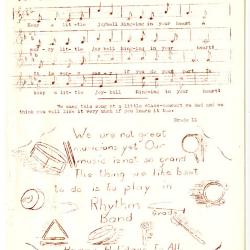 Keep a lit-tle joybell ring-ing in your heart
lit-tle joy bell ring-ing in your heart
if you do your part
keep a lit-tle joy-bell ring-ing in your heart
We sang this song at a little class-concert we had and we
think you will like it very much if you learn it too.
Grade II
We are not great
musicians yet Our
music is not so grand
The thing we like best
to do is to play in
Rhythm
Band
Grade I